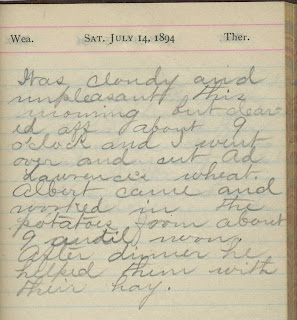 Wea. SAT. JULY 14, 1894 Ther.
Was cloudy and
unpleasant this
morning but clear-
ed off about 9
o'clock and I went
over and cut Ad
Lawrence's wheat.
Albert came and
worked in the
potatoes from about
9 until noon.
After dinner he
helped them with
their hay.